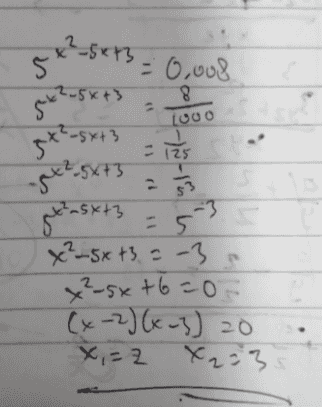 5^{x²-5x+3} = 0,008
5^{x²-5x+3} = 8/1000
5^{x²-5x+3} = 1/125
5^{x²-5x+3} = 1/5³
5^{x²-5x+3} = 5^{-3}
x²-5x+3 = -3
x²-5x+6 = 0
(x-2)(x-3) = 0
x₁=2 x₂=3